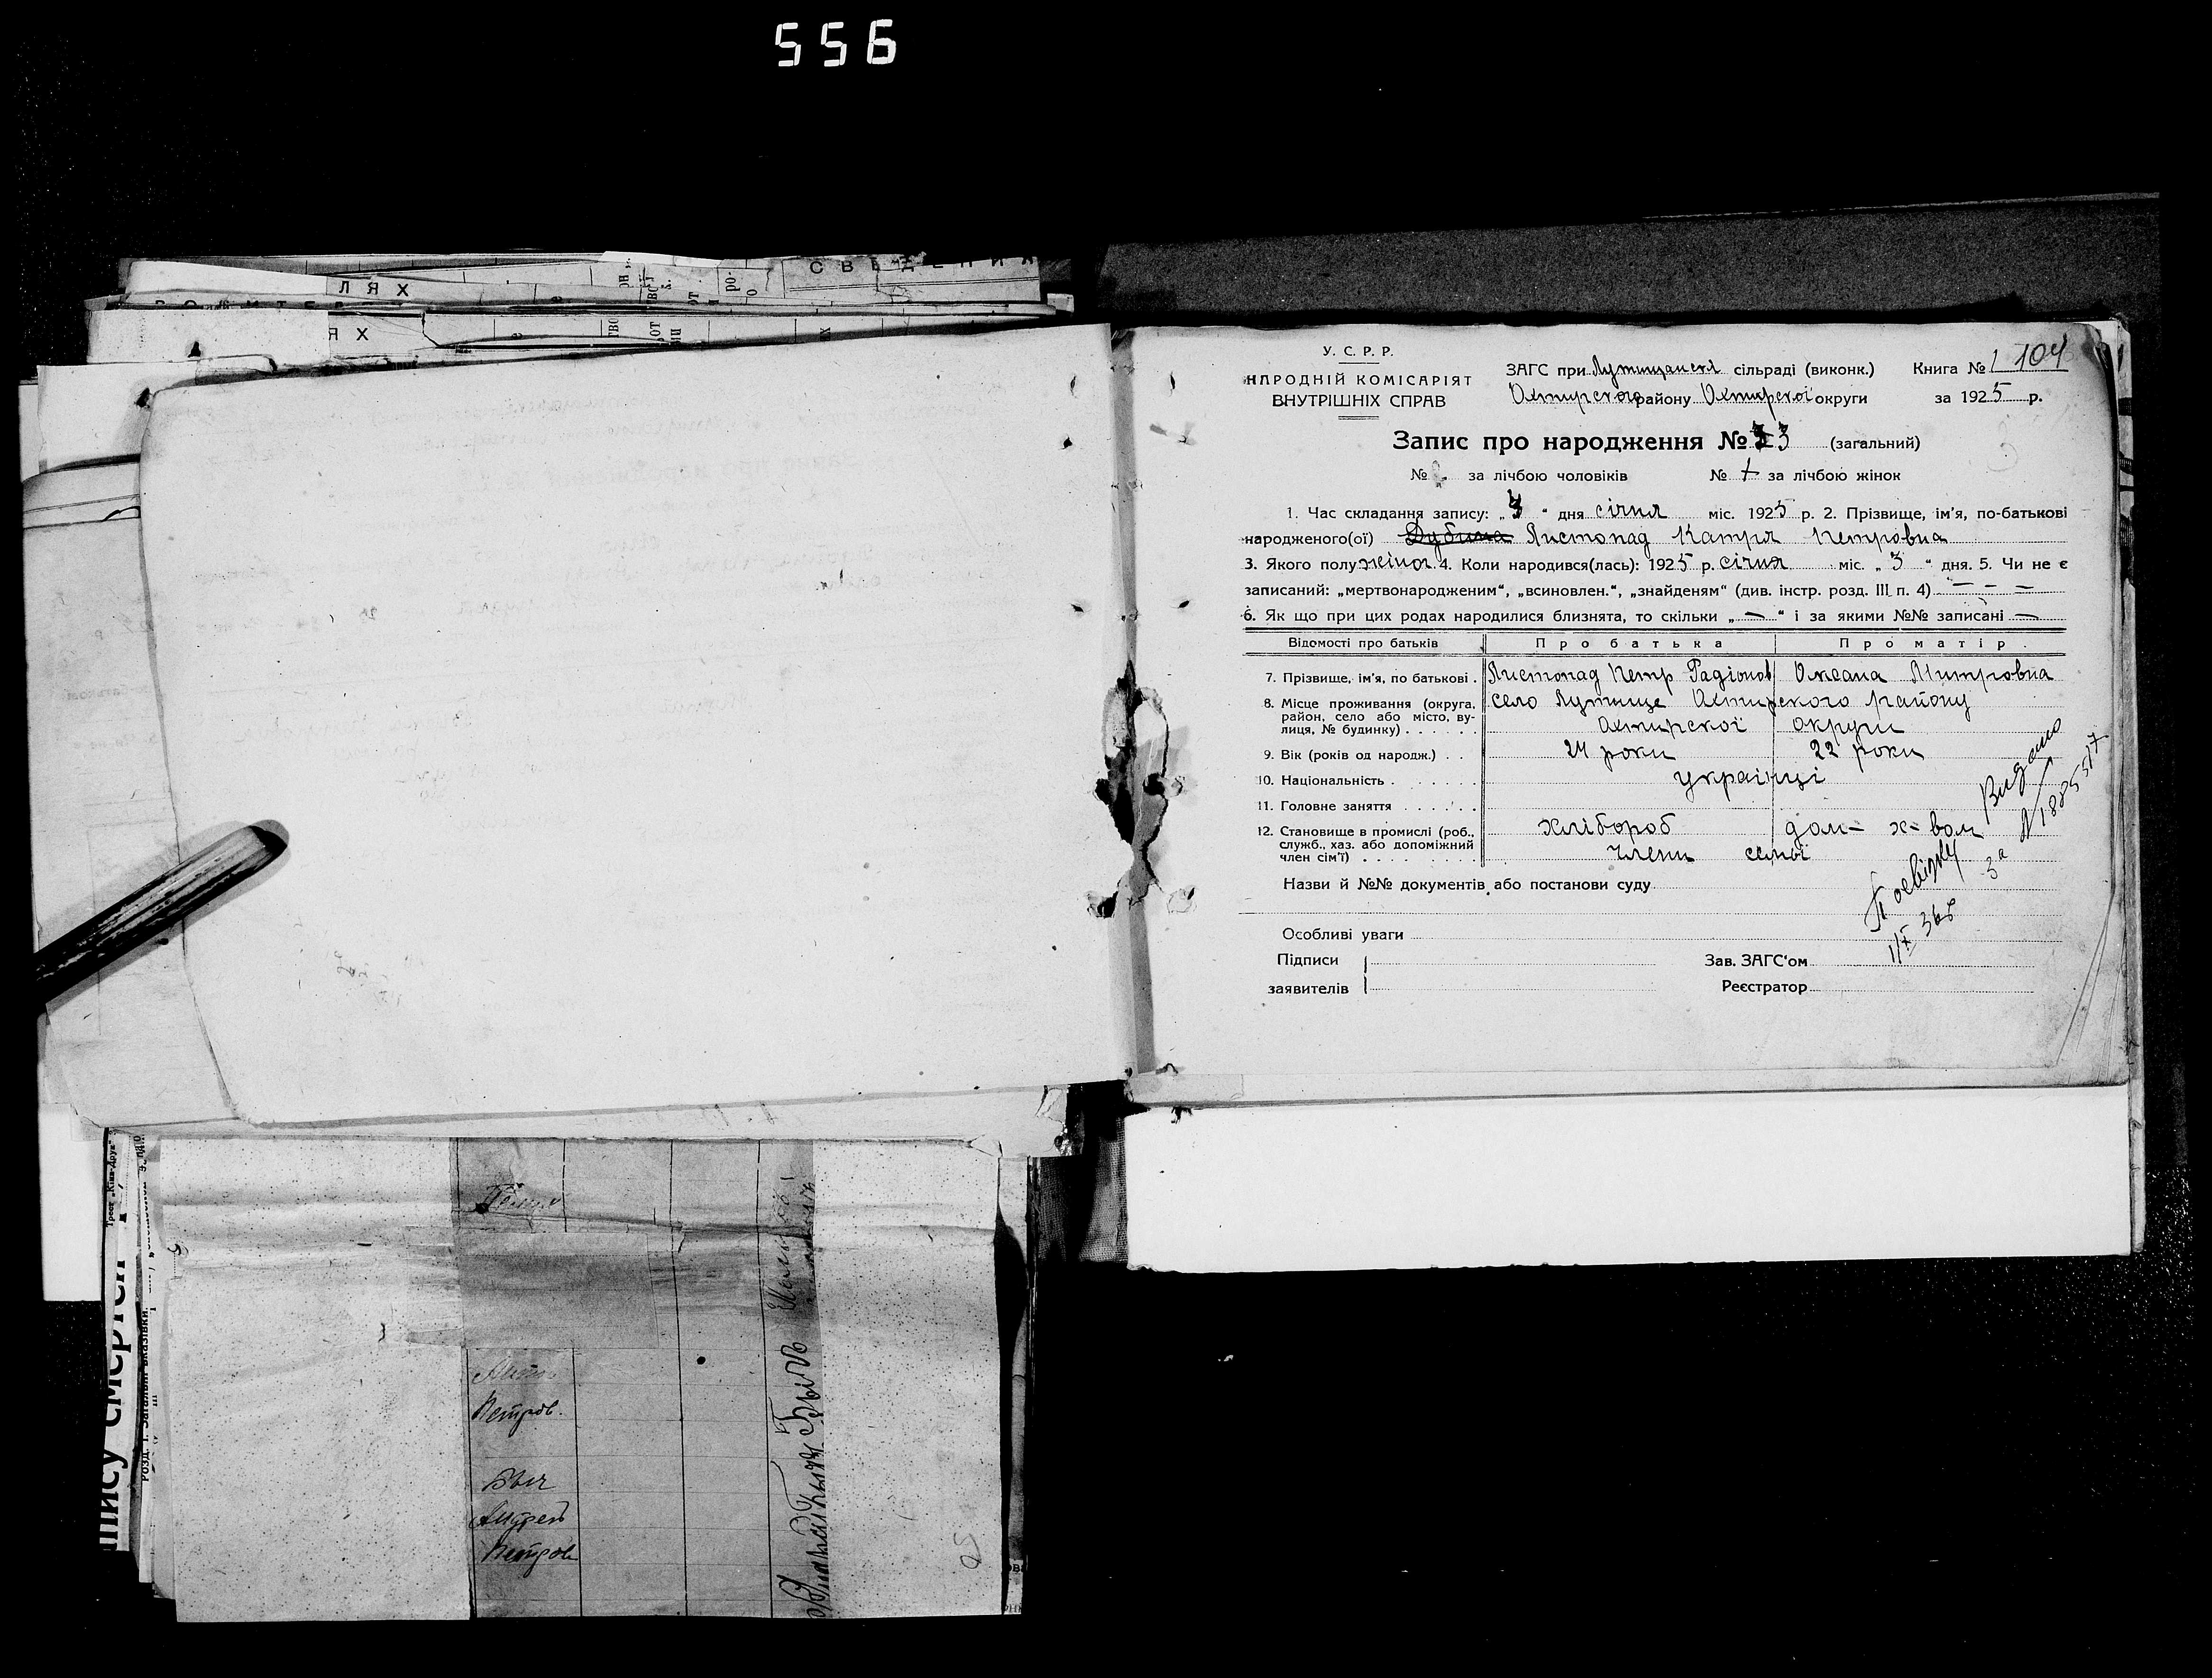 556
СВѢДЕНИЯ
ЛЯХ
ЯХ
У. С. Р. Р.
НАРОДНІЙ КОМІСАРІЯТ
ВНУТРІШНІХ СПРАВ
ЗАГС при Лутищанскя сільраді (виконк.) Книга № 1 104
Охтирского району Охтирскої округи за 1925 р.
Запис про народження № 3 (загальний)
№ за лічбою чоловіків № 1 за лічбою жінок
1. Час складання запису: „ “ дня січня міс. 1925 р. 2. Прізвище, ім'я, по-батькові
народженого(ої) Дубина Листопад Катря Петровна
3. Якого полу жіног. 4. Коли народився(лась): 1925 р. січня міс. „ 3 “ дня. 5. Чи не є
записаний: „мертвонародженим“, „всиновлен.“, „знайденям“ (див. інстр. розд. III п. 4) — — —
6. Як що при цих родах народилися близнята, то скільки „ — “ і за якими №№ записані —
Відомості про батьків Про батька Про матір.
7. Прізвище, ім'я, по батькові . Листопад Петр Радіонов Оксана Митровна
8. Місце проживання (округа, село Лутище Охтирского району
район, село або місто, ву- Охтирскої округи
лиця, № будинку) . . . . . .
9. Вік (років од народж.) . . 24 роки 22 роки
10. Національність . . . . . . українці
11. Головне заняття . . . . . .
12. Становище в промислі (роб., хлібороб дом- х-вом
служб., хаз. або допоміжний члени семьї
член сім'ї) . . . . . . . . .
Видано
Посвідку
за № 1885517
1/X 36р
Назви й №№ документів або постанови суду
Особливі уваги
Підписи Зав. ЗАГС'ом
заявителів Реєстратор
Петров.
Андрей
Петров